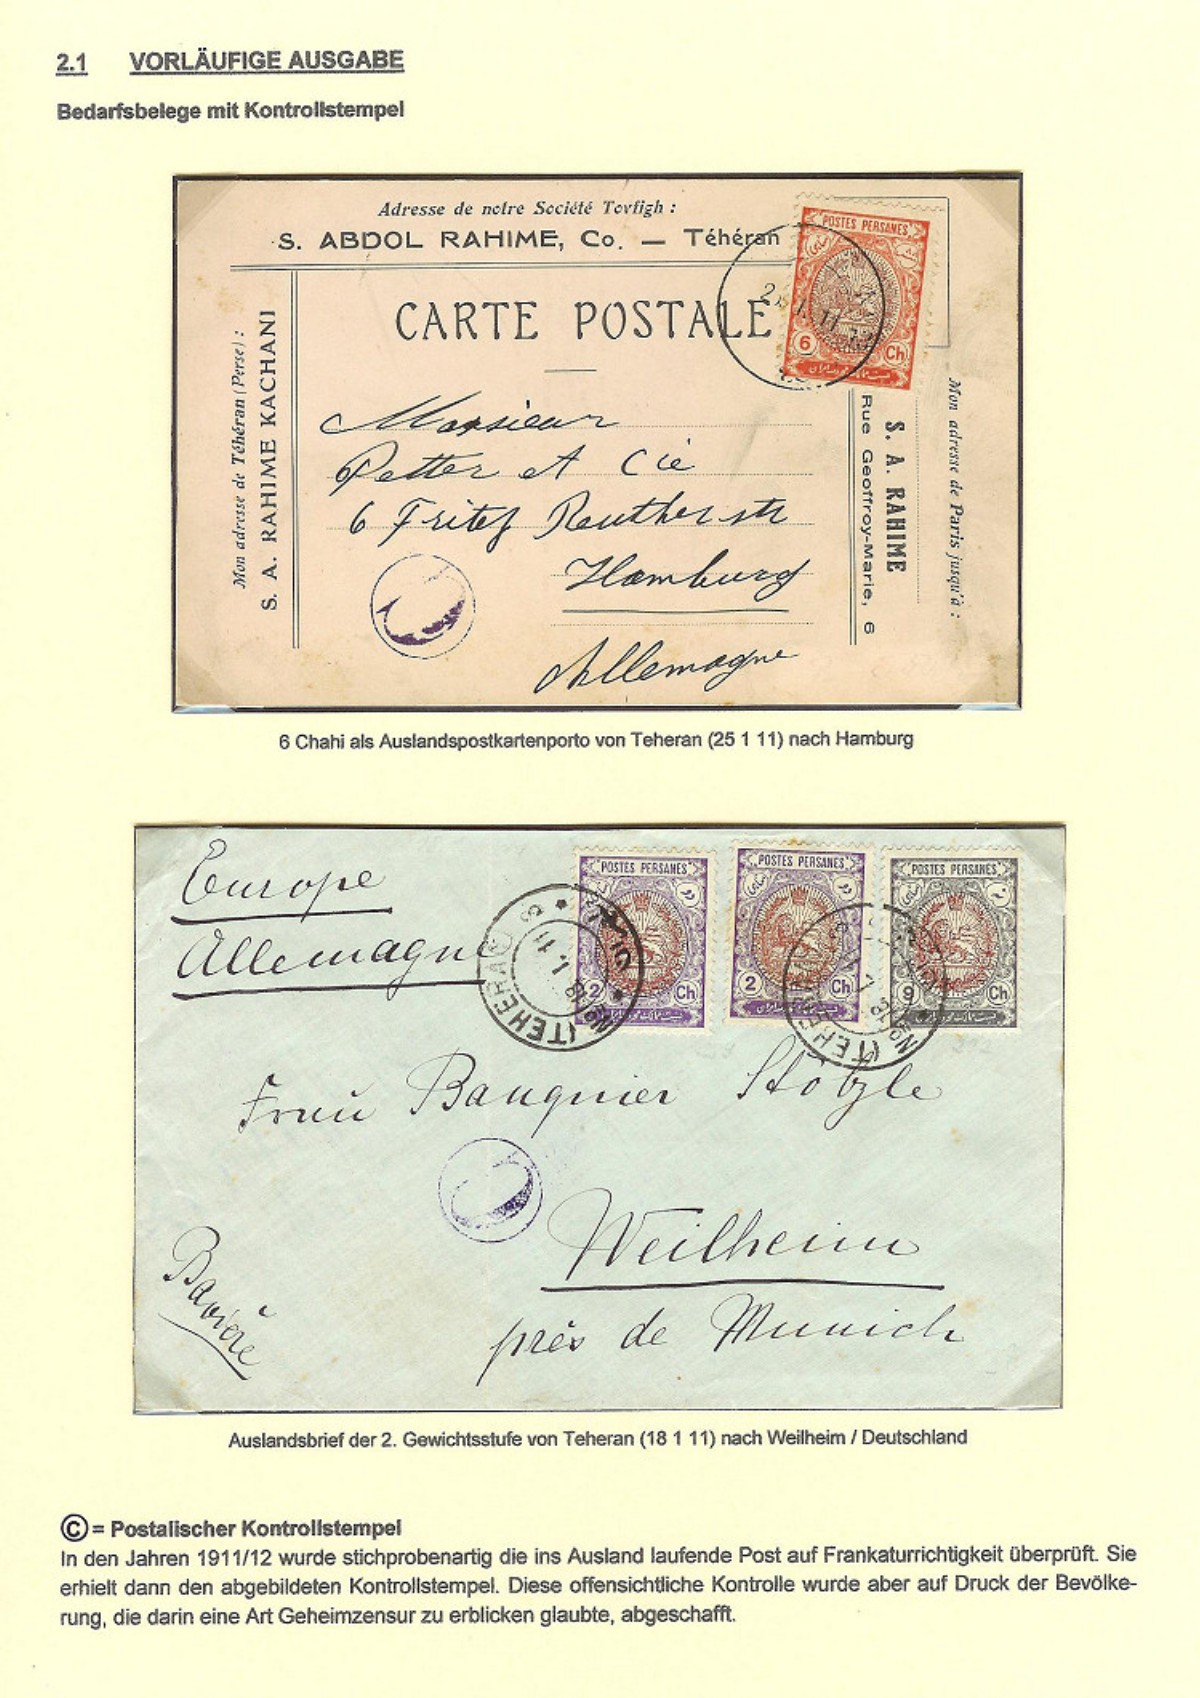 2.1 VORLÄUFIGE AUSGABE
Bedarfsbelege mit Kontrollstempel
Adresse de notre Société Tovfigh :
S. ABDOL RAHIME, Co. — Téhéran
POSTES PERSANES
6 Ch
CARTE POSTALE
Mon adresse de Téhéran (Perse) :
S. A. RAHIME KACHANI
Monsieur
Petter et Cie
6 Fritz Reutherstr
Hamburg
Allemagne
Mon adresse de Paris jusqu'à :
S. A. RAHIME
Rue Geoffroy-Marie, 6
6 Chahi als Auslandspostkartenporto von Teheran (25 1 11) nach Hamburg
Europe
Allemagne
POSTES PERSANES
2 Ch
POSTES PERSANES
2 Ch
POSTES PERSANES
9 Ch
Frau Banquier Stölzle
Weilheim
près de Munich
Bavière
Auslandsbrief der 2. Gewichtsstufe von Teheran (18 1 11) nach Weilheim / Deutschland
© = Postalischer Kontrollstempel
In den Jahren 1911/12 wurde stichprobenartig die ins Ausland laufende Post auf Frankaturrichtigkeit überprüft. Sie
erhielt dann den abgebildeten Kontrollstempel. Diese offensichtliche Kontrolle wurde aber auf Druck der Bevölke-
rung, die darin eine Art Geheimzensur zu erblicken glaubte, abgeschafft.